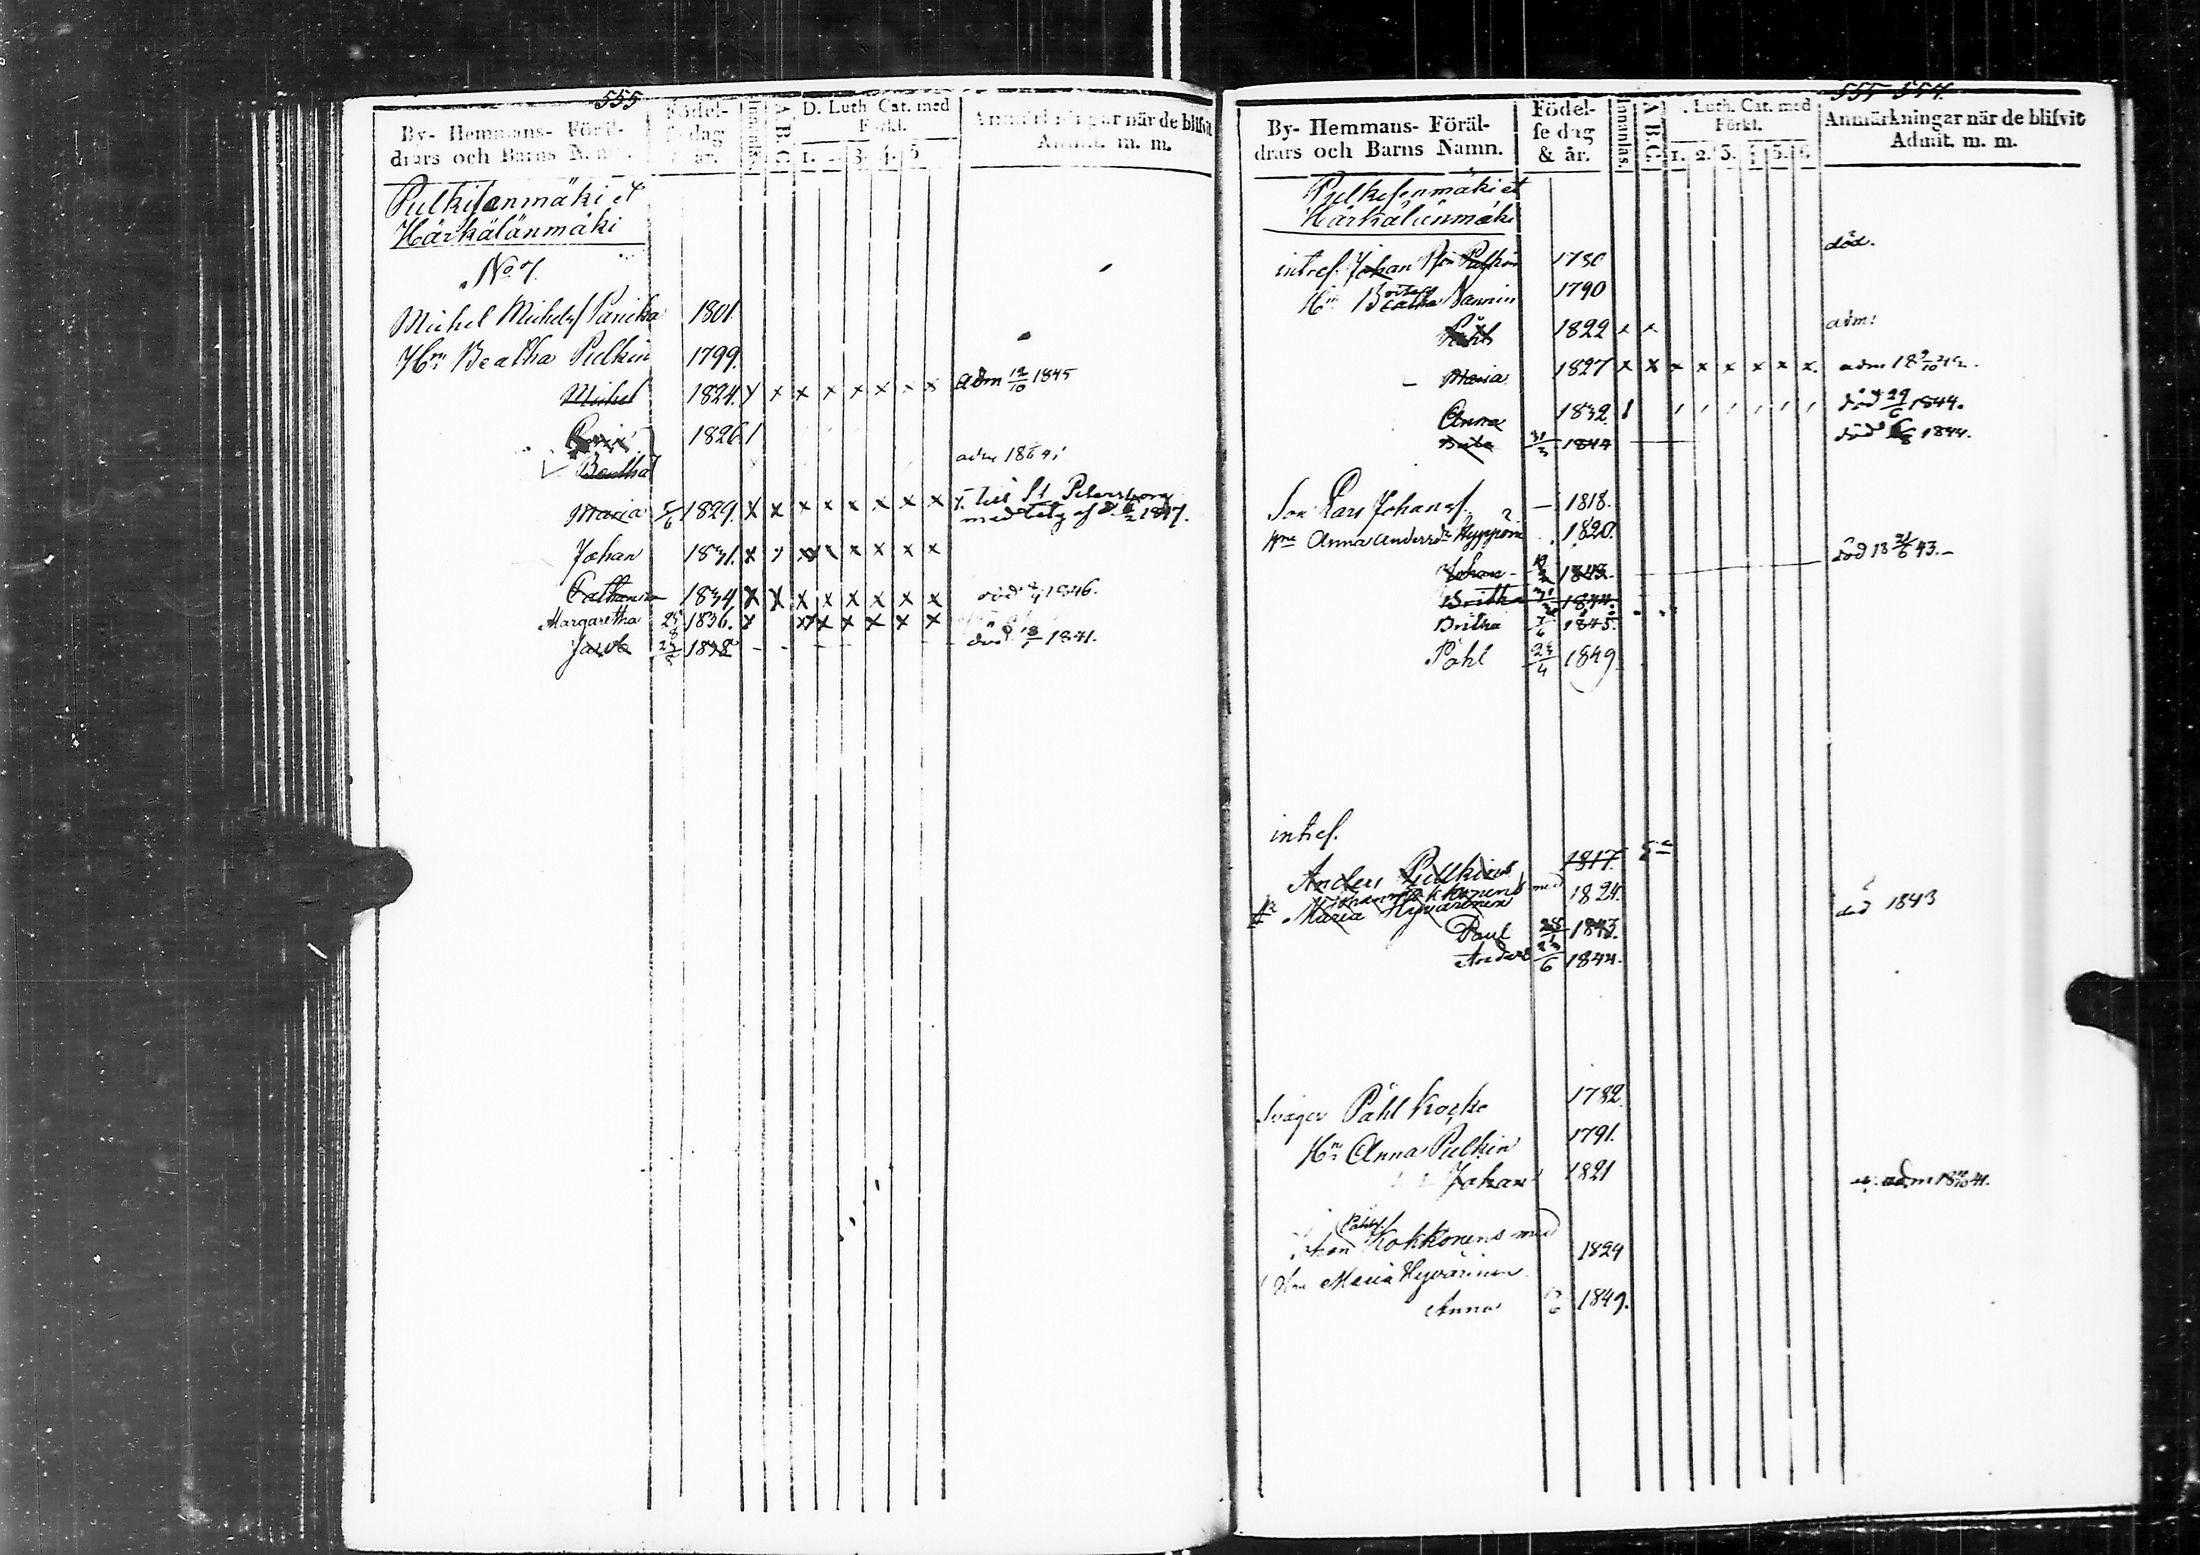 555
By- Hemmans- Föräl-
drars och Barns Namn.
Födel-
se dag
& år.
Innanläs.
A. B. C.
D. Luth. Cat. med
Förkl.
1. 3. 4. 5
Anmärkningar när de blifvit
Admit. m. m.
Pulkisenmäki et
Härkälänmäki
No 7.
Michel Michelsf 1801.
Hn Beatha Pulkin 1799.
Michel 1824. x x x x x x x x adm 12/10 1845
1826 1
Beatha adm 186
Maria 5/6 1829. x x x x x x x x till St Petersborg
med 1847.
Johan 1831. x x x x x x x x
Catharina 1834 x x x x x x x x död 1846.
Margaretha 25/8 1836. x x x x x x x
Jacob 25/8 1838 död 13/7 1841.
555 554.
By- Hemmans- Föräl-
drars och Barns Namn.
Födel-
se dag
& år.
Innanläs.
A. B. C.
. Luth. Cat. med
Förkl.
1. 2. 3. 5.
Anmärkningar när de blifvit
Admit. m. m.
Pulkisenmäki et
Härkälänmäki
intres. Johan Pulkin 1780 död.
Hn Beatha Nannin 1790
Påhl 1822 x x adm:
Maria 1827 x x x x x x x x. adm
Anna 1832. 1 död 29/6 1844.
Brita 31/3 1844 död 1844.
Son Lars Johansf. 1818.
Hne Anna Andersdr Hyppöin 1820.
Johan 1843. död 43.
Britha 1844.
Britha 7/6 1845.
Påhl 24/4 1849
intres.
Anders Pulkinen 1817.
Johan Kokkonens med
Hn Maria Hyvärinen 1824.
Paul 1843. död 1843
Anders 23/6 1844.
Svåger Påhl Kocko 1782.
Hn Anna Pulkin 1791.
Johan 1821 adm 41.
Påhlsf.
Johan Kokkonens med
Hne Maria Hyvärinen 1824
Anna 1849.